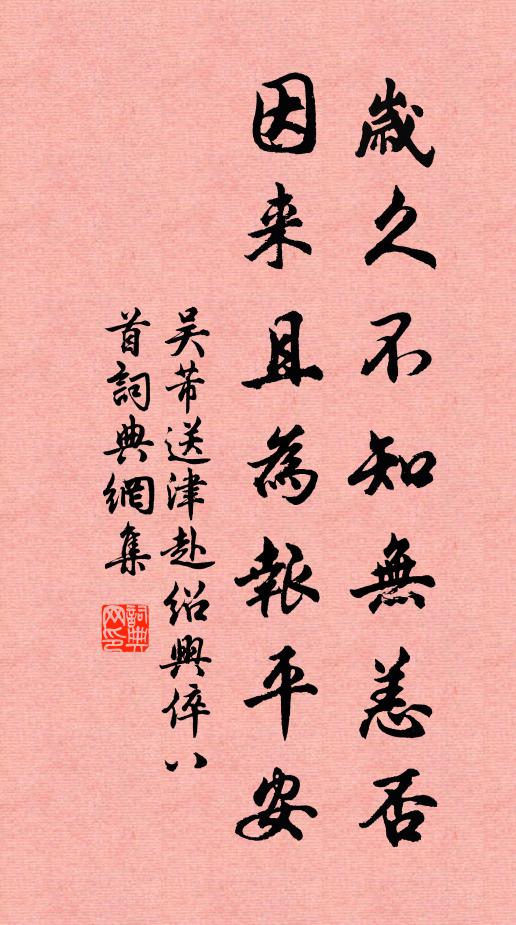 歲久不知無恙否
因来且為報平安
吴芾送津赴绍興倅八
首詞典網集
詞典網印